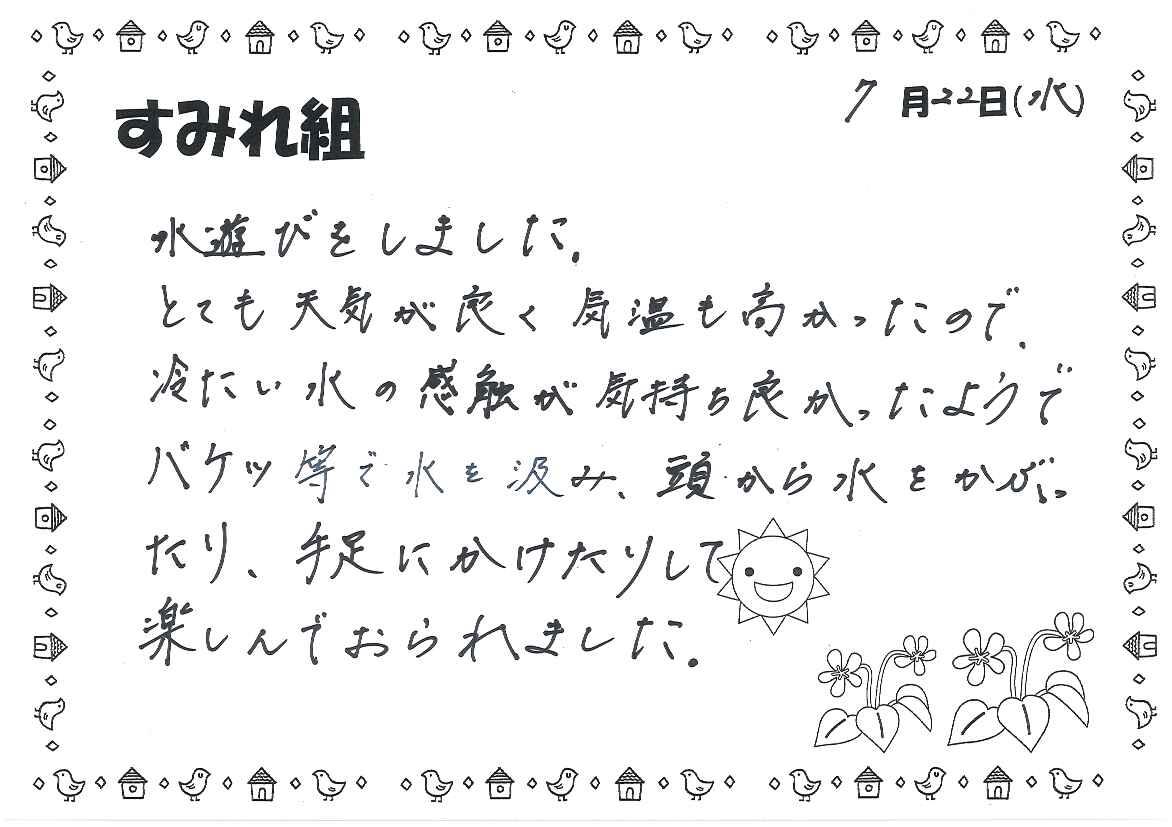 すみれ組
7月22日(水)
水遊びをしました。
とても天気が良く気温も高かったので、
冷たい水の感触が気持ち良かったようで
バケツ等で水を汲み、頭から水をかぶっ
たり、手足にかけたりして
楽しんでおられました。